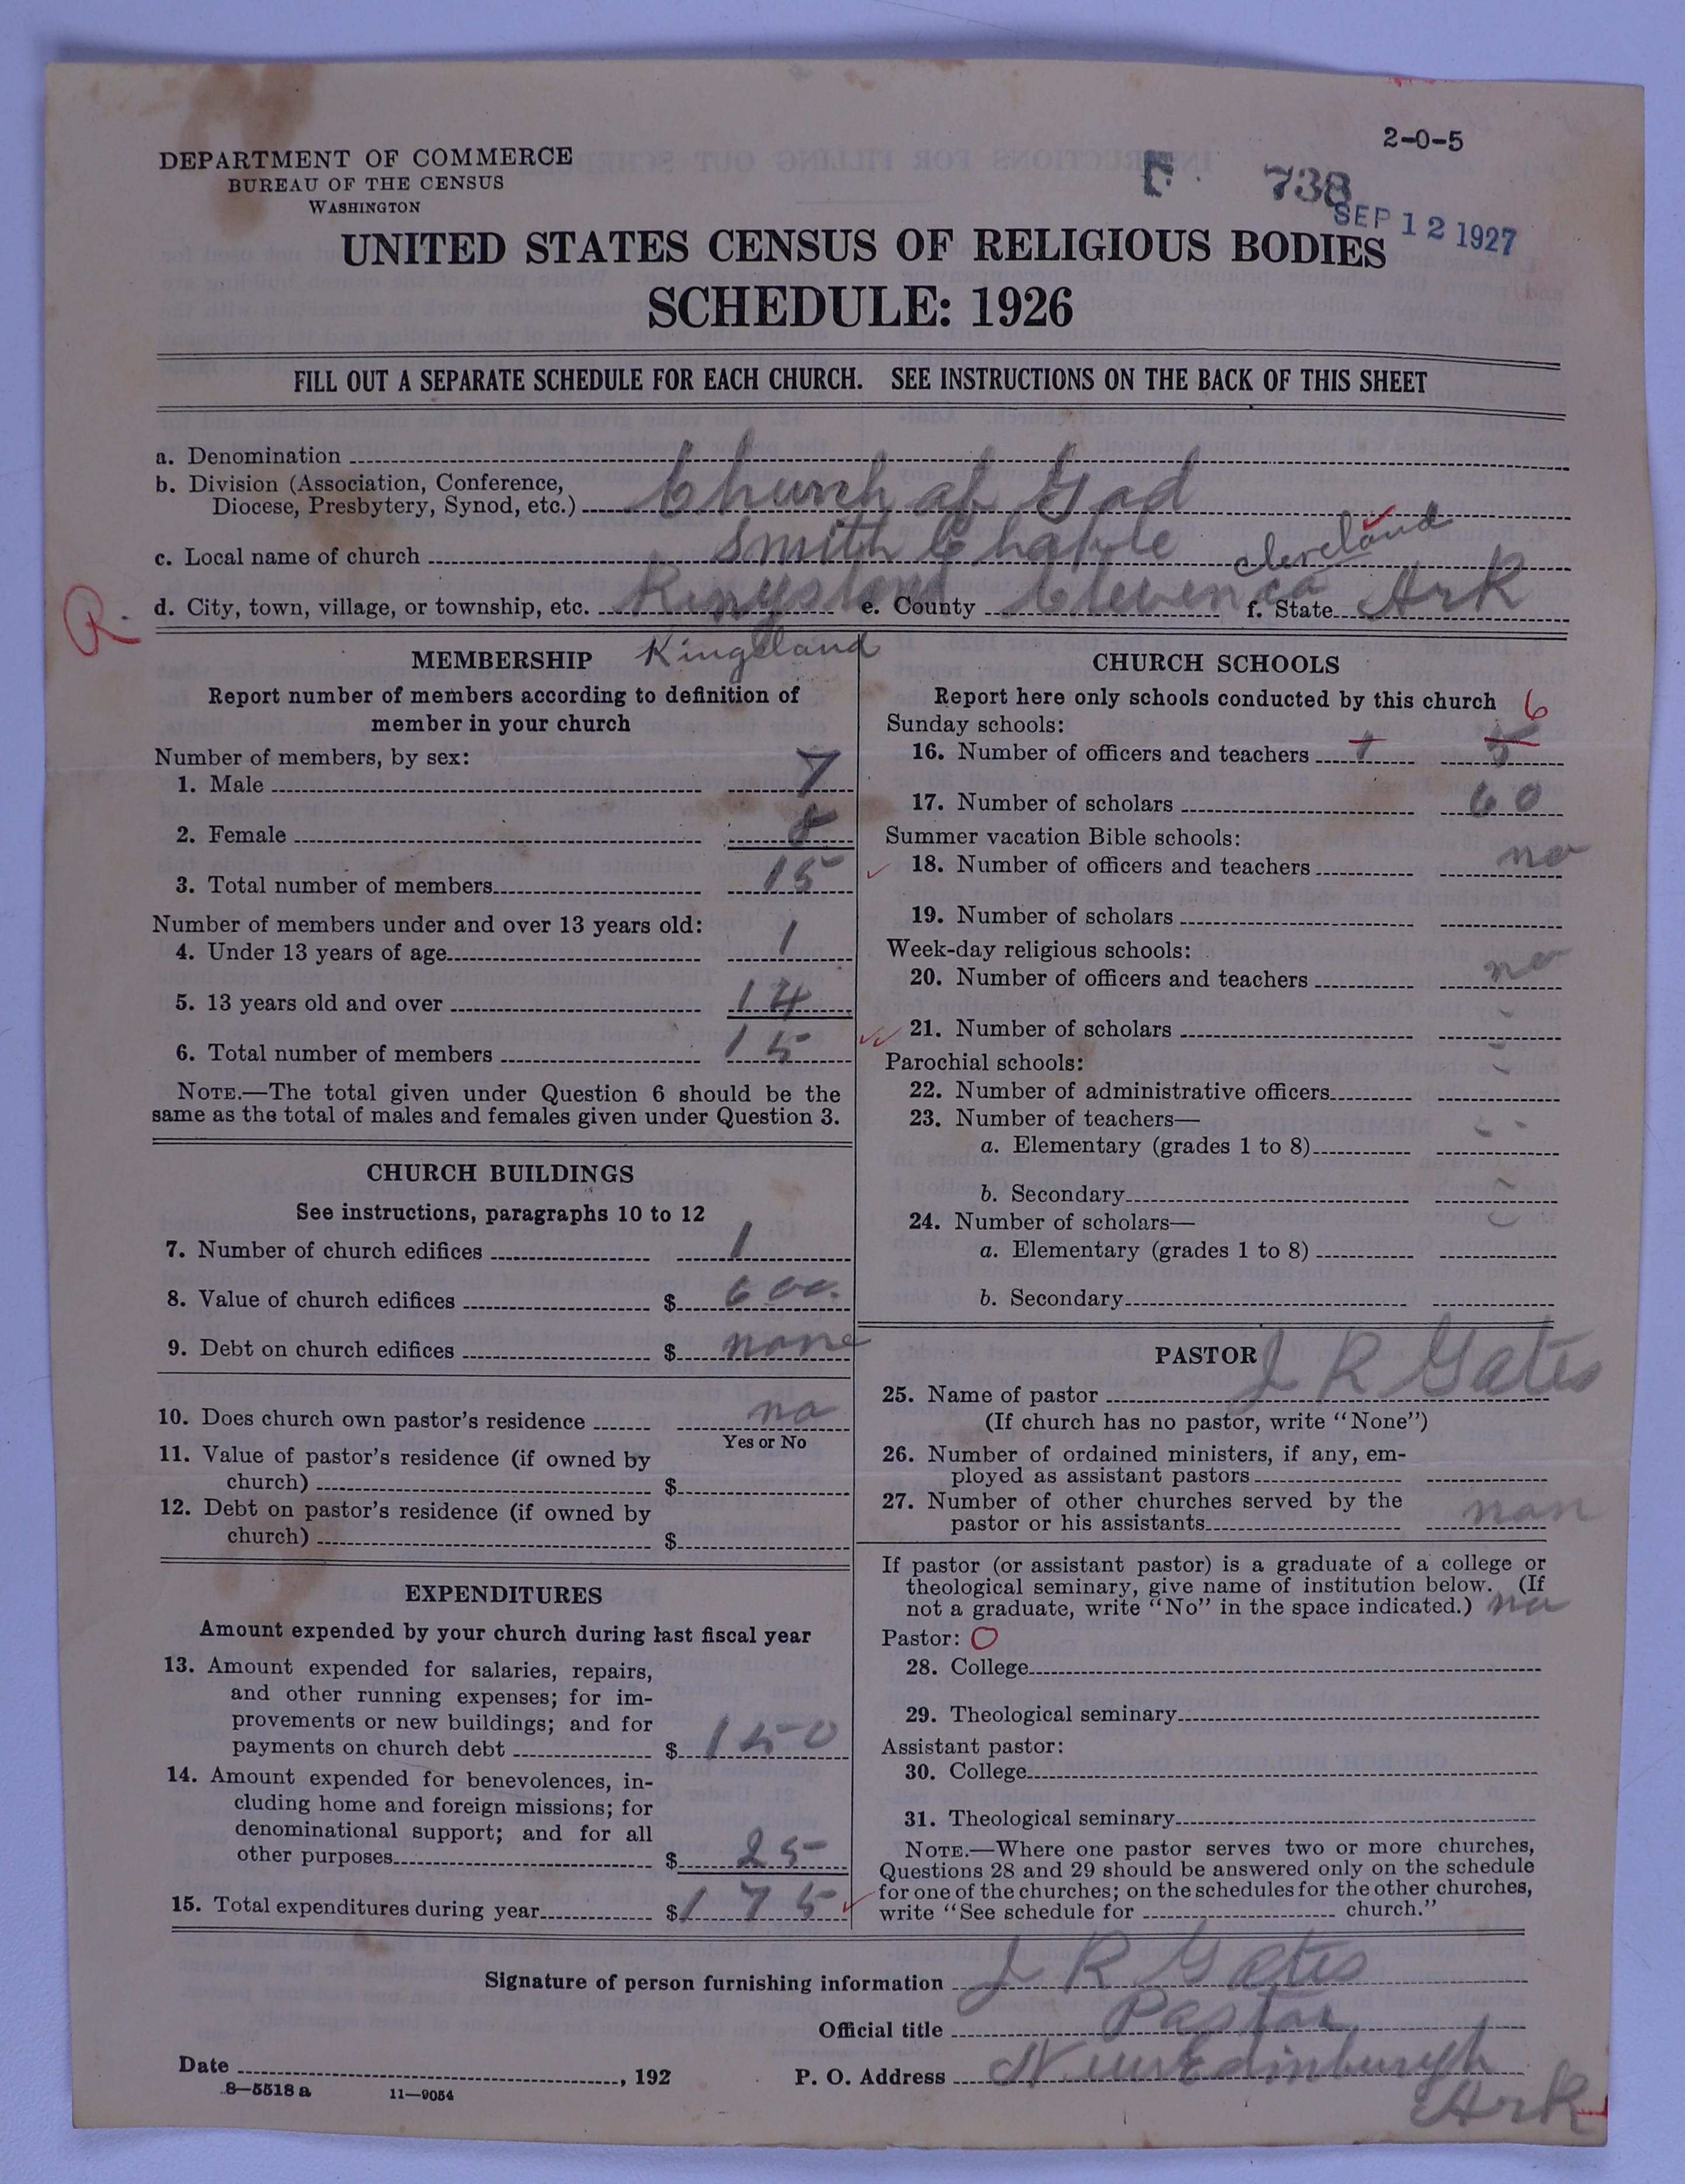 2-0-5
DEPARTMENT OF COMMERCE
BUREAU OF THE CENSUS
WASHINGTON
F. 738
SEP 12 1927
UNITED STATES CENSUS OF RELIGIOUS BODIES
SCHEDULE: 1926
FILL OUT A SEPARATE SCHEDULE FOR EACH CHURCH. SEE INSTRUCTIONS ON THE BACK OF THIS SHEET
a. Denomination
b. Division (Association, Conference,
Diocese, Presbytery, Synod, etc.) Church of God
c. Local name of church Smith Chaple
Cleveland
R. d. City, town, village, or township, etc. Kingsland e. County f. State Ark
Kingsland
MEMBERSHIP
Report number of members according to definition of
member in your church
Number of members, by sex:
1. Male 7
2. Female 8
3. Total number of members 15
Number of members under and over 13 years old:
4. Under 13 years of age 1
5. 13 years old and over 14
6. Total number of members 15
NOTE.—The total given under Question 6 should be the
same as the total of males and females given under Question 3.
CHURCH BUILDINGS
See instructions, paragraphs 10 to 12
7. Number of church edifices 1
8. Value of church edifices $ 600.
9. Debt on church edifices $ none
10. Does church own pastor's residence no
Yes or No
11. Value of pastor's residence (if owned by
church) $
12. Debt on pastor's residence (if owned by
church) $
EXPENDITURES
Amount expended by your church during last fiscal year
13. Amount expended for salaries, repairs,
and other running expenses; for im-
provements or new buildings; and for
payments on church debt $ 150
14. Amount expended for benevolences, in-
cluding home and foreign missions; for
denominational support; and for all
other purposes $ 25
15. Total expenditures during year $ 175
CHURCH SCHOOLS
Report here only schools conducted by this church 6
Sunday schools:
16. Number of officers and teachers 1 5
17. Number of scholars 60
Summer vacation Bible schools:
18. Number of officers and teachers no
19. Number of scholars
Week-day religious schools:
20. Number of officers and teachers no
21. Number of scholars
Parochial schools:
22. Number of administrative officers
23. Number of teachers—
a. Elementary (grades 1 to 8)
b. Secondary
24. Number of scholars—
a. Elementary (grades 1 to 8)
b. Secondary
PASTOR
25. Name of pastor J R Gates
(If church has no pastor, write "None")
26. Number of ordained ministers, if any, em-
ployed as assistant pastors
27. Number of other churches served by the
pastor or his assistants non
If pastor (or assistant pastor) is a graduate of a college or
theological seminary, give name of institution below. (If
not a graduate, write "No" in the space indicated.) no
Pastor: O
28. College
29. Theological seminary
Assistant pastor:
30. College
31. Theological seminary
NOTE.—Where one pastor serves two or more churches,
Questions 28 and 29 should be answered only on the schedule
for one of the churches; on the schedules for the other churches,
write "See schedule for church."
Signature of person furnishing information J R Gates
Official title Pastor
Date , 192 P. O. Address New Edinburgh
Ark
8—5518 a 11—9054